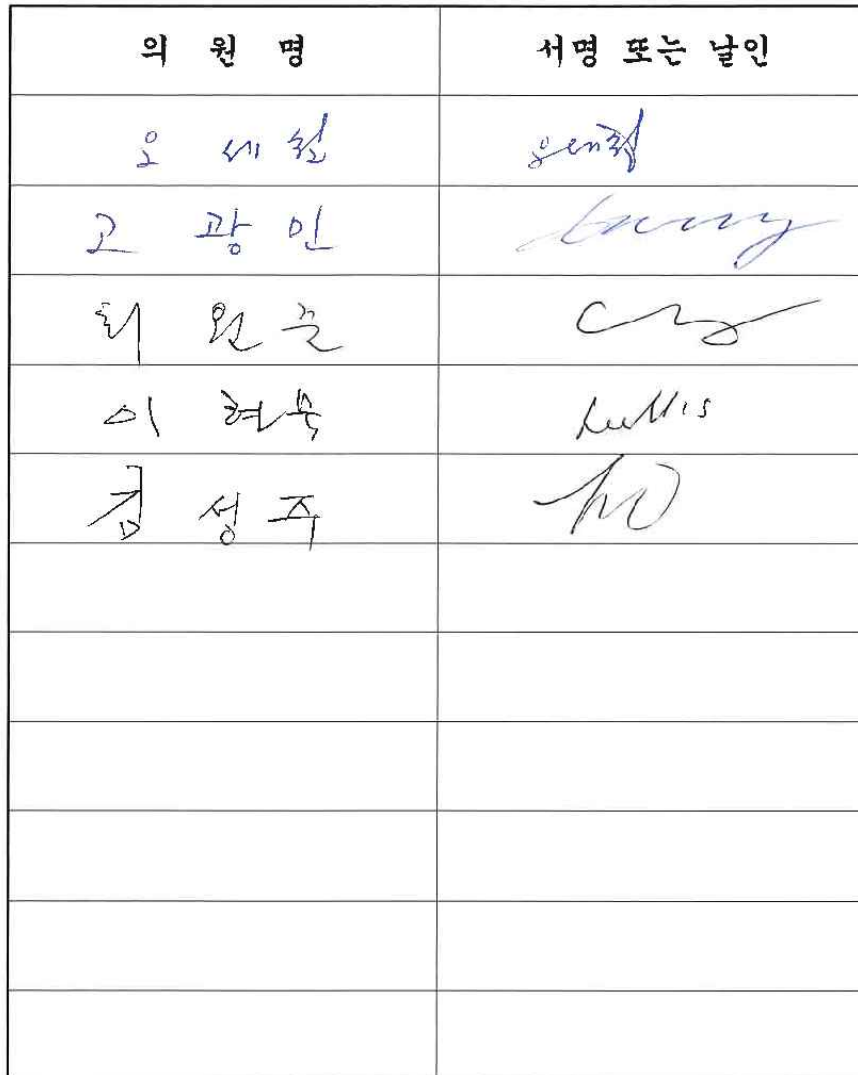 의 원 명 서명 또는 날인
오 세 철 오세철
고 광 민
최 원 준
이 현 숙
김 성 주